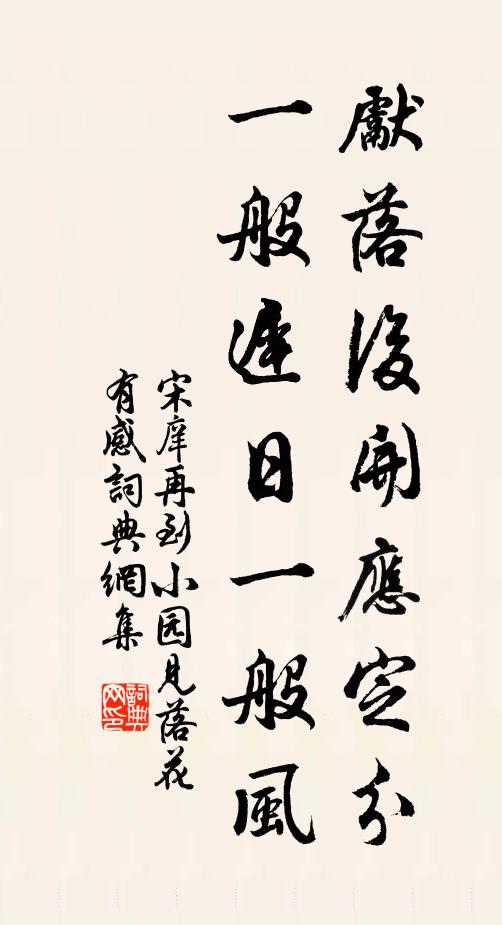 獻落後開應定分
一般遲日一般風
宋庠再到小园見落花
有感詞典網集
詞典网印